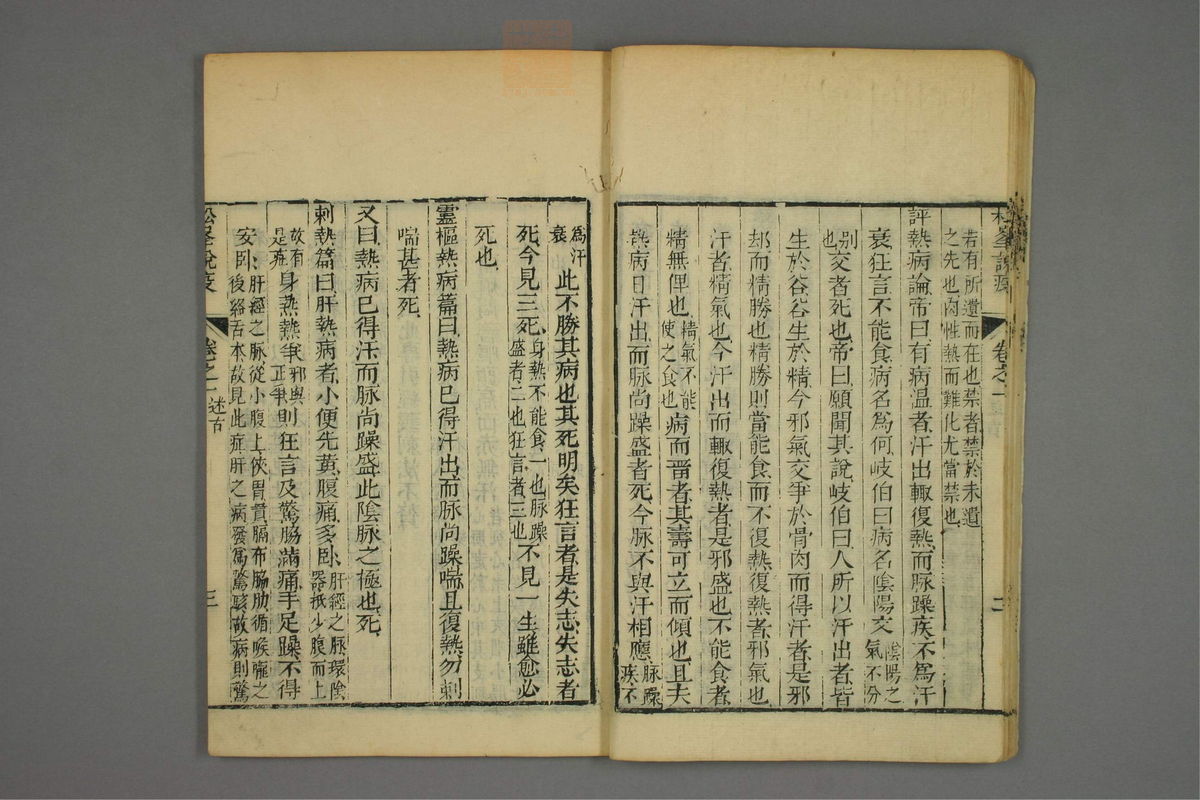 松峯說疫 卷之一 二
若有所遺而在也禁者禁於未遺
之先也肉性熱而難化尤當禁也
評熱病論帝曰有病溫者汗出輒復熱而脉躁疾不爲汗
衰狂言不能食病名爲何岐伯曰病名陰陽交陰陽之
氣不分
別
也交者死也帝曰願聞其說岐伯曰人所以汗出者皆
生於谷谷生於精今邪氣交爭於骨肉而得汗者是邪
却而精勝也精勝則當能食而不復熱復熱者邪氣也
汗者精氣也今汗出而輒復熱者是邪盛也不能食者
精無俾也精氣不能
使之食也病而畱者其壽可立而傾也且夫
熱病日汗出而脉尚躁盛者死今脉不與汗相應脉躁
疾不
爲汗
衰此不勝其病也其死明矣狂言者是失志失志者
死今見三死身熱不能食一也脉躁
盛者二也狂言者三也不見一生雖愈必
死也
靈樞熱病篇曰熱病已得汗出而脉尚躁喘且復熱勿刺
喘甚者死
又曰熱病已得汗而脉尚躁盛此陰脉之極也死
刺熱篇曰肝熱病者小便先黃腹痛多卧肝經之脉環陰
器抵少腹而上
故有
是症身熱熱爭邪與
正爭則狂言及驚脇滿痛手足躁不得
安卧肝經之脉從小腹上俠胃貫膈布脇肋循喉嚨之
後絡舌本故見此症肝之病發爲驚駭故病則驚
松峯說疫 卷之一 述古 三